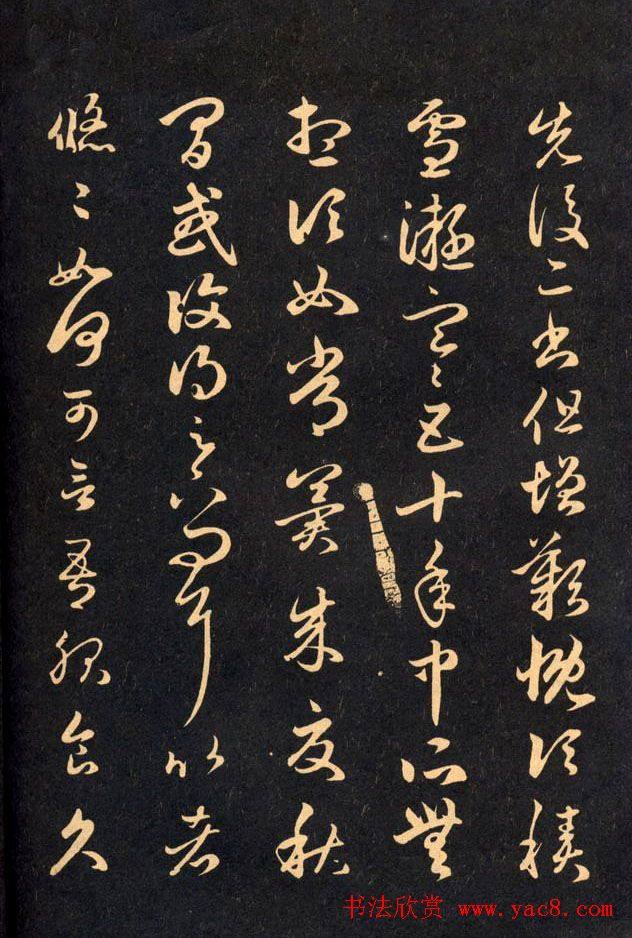 先后二书但增叹慨顷积
雪凝寒五十年中所无
想顷如常冀来夏秋
间或复得足下问耳比者
悠悠如何可言吾服食久
书法欣赏 www.yac8.com